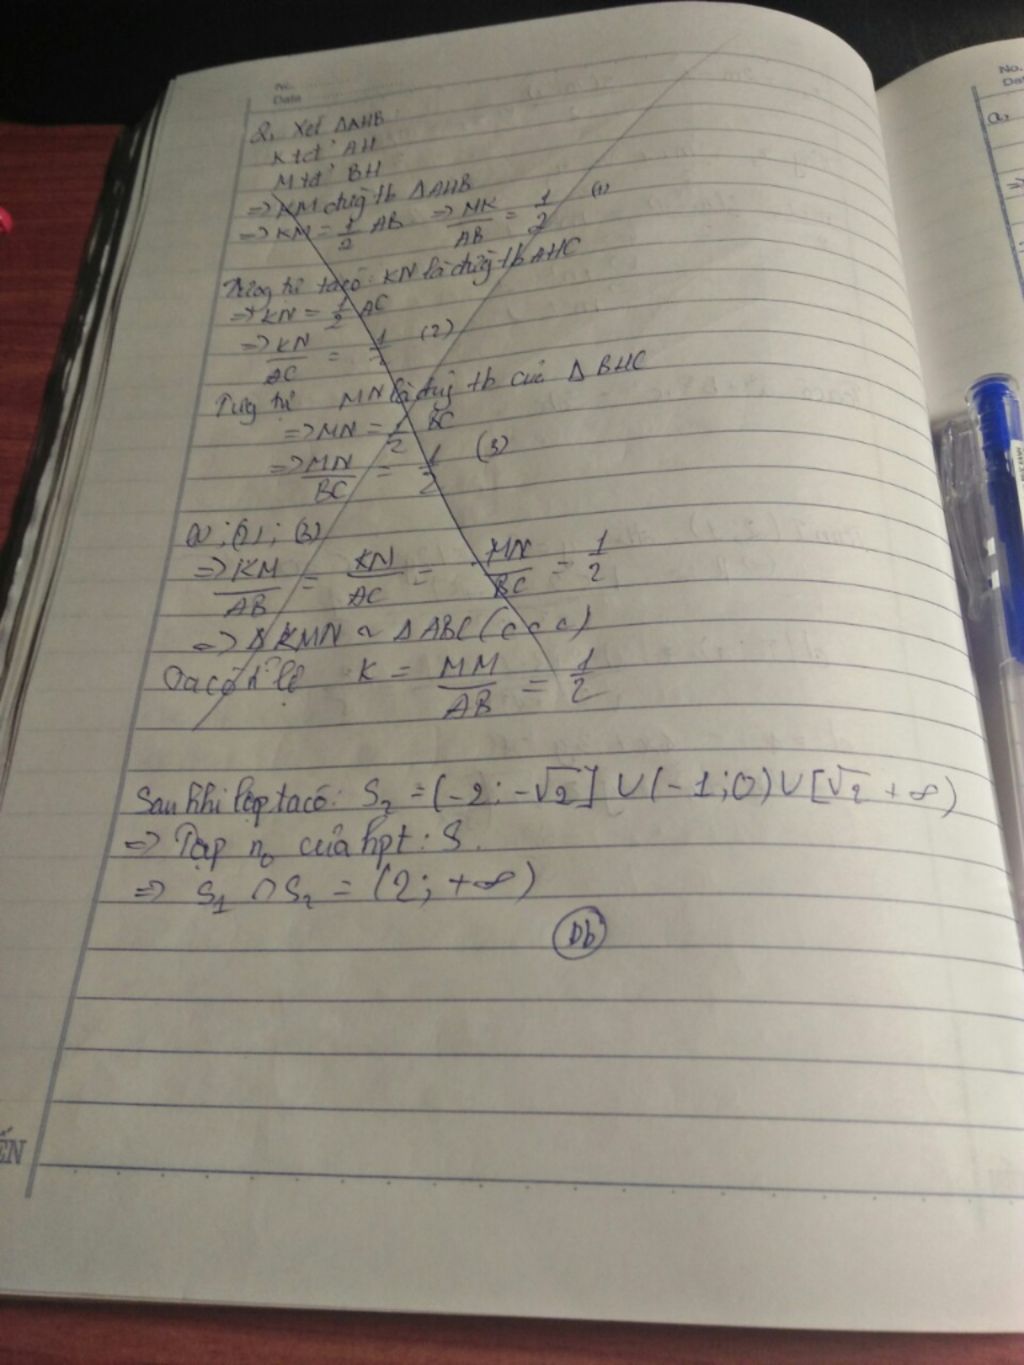 No.
Date
2, Xét ΔAHB
K tđ' AH
M tđ' BH
=> KM đường tb ΔAHB
=> KM = 1/2 AB => MK/AB = 1/2 (1)
Tương tự ta có: KN là đường tb AHC
=> KN = 1/2 AC
=> KN/AC = 1/2 (2)
Tương tự MN là đường tb của ΔBHC
=> MN = 1/2 BC
=> MN/BC = 1/2 (3)
(1); (2); (3)
=> KM/AB = KN/AC = MN/BC = 1/2
=> ΔKMN ~ ΔABC (c c c)
Ta có tỉ lệ K = MM/AB = 1/2
Sau khi lập ta có: S₂ = (-2; -√2] ∪ (-1; 0) ∪ [√2 + ∞)
=> Tập n₀ của hpt: S.
=> S₁ ∩ S₂ = (2; +∞)
Db
ẾN
No.
Dat
a,